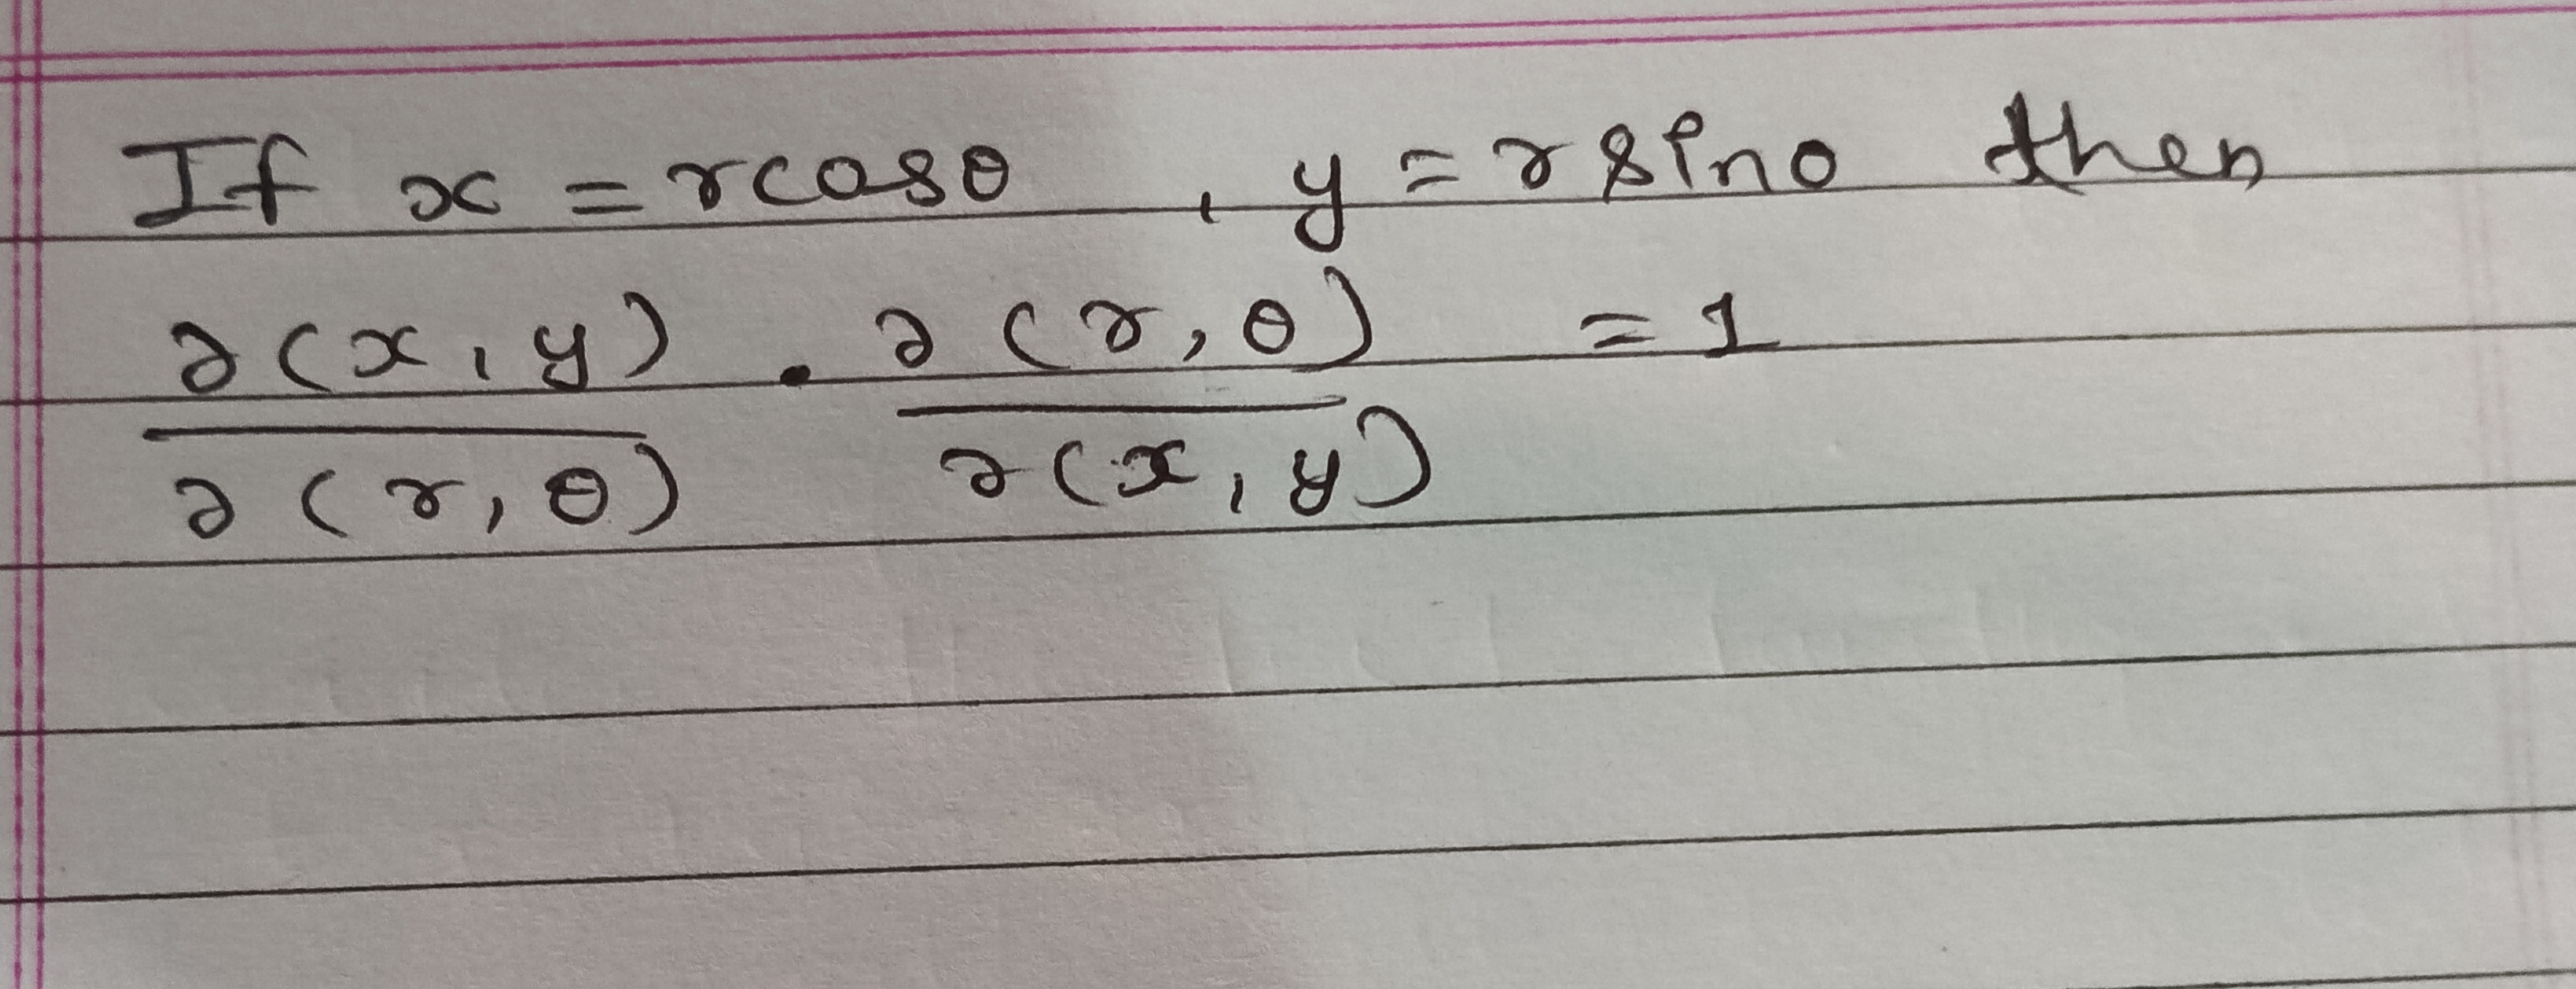 If x = rcosθ , y = rsinθ then
∂(x, y) . ∂(r, θ) = 1
∂(r, θ) ∂(x, y)